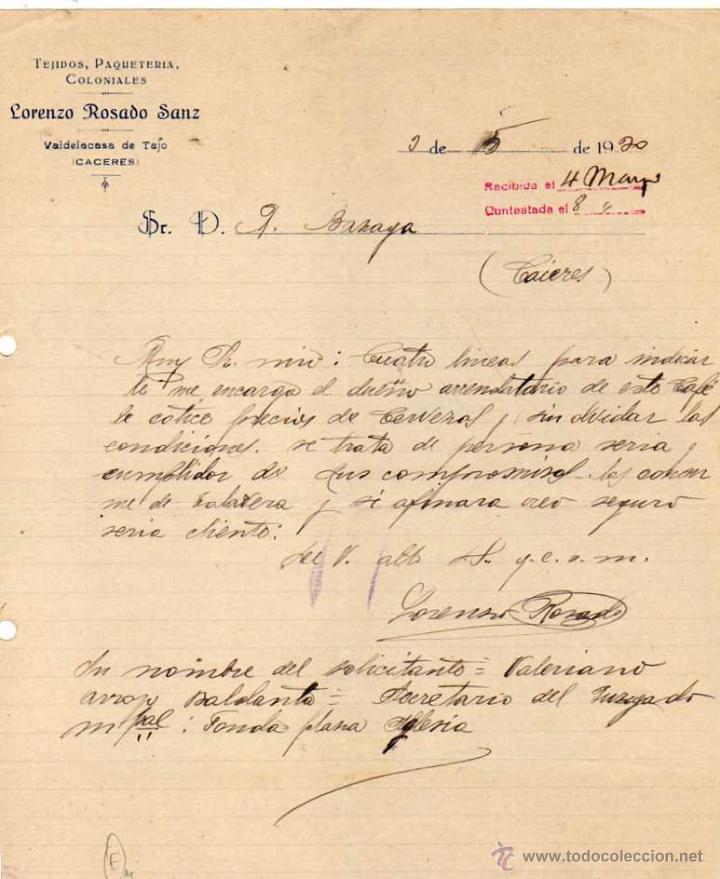 TEJIDOS, PAQUETERIA,
COLONIALES
Lorenzo Rosado Sanz
Valdelacasa de Tajo
(CACERES)
3 de 5 de 1920
Recibida el 4 Mayo
Contestada el 8 "
Sr. D. P. Bazaga
(Cáceres)
Muy Sr. mio: Cuatro lineas para indicar
le me encarga el dueño arrendatario de este Café
le cotice precios de Cervezas y sin olvidar las
condiciones. se trata de persona seria y
cumplidor de sus compromisos - las consu
me de Talavera y si afinara creo seguro
seria cliente:
De V. atto S. q.e.s.m.
Lorenzo Rosado
Su nombre del solicitante = Valeriano
= Secretario del Juzgado
mpal: Fonda plaza Iglesia
E
www.todocoleccion.net